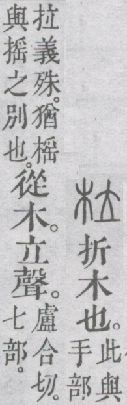 柆折木也。此與
手部
拉義殊。猶榣
與搖之別也。
從木。立聲。盧合切。
七部。